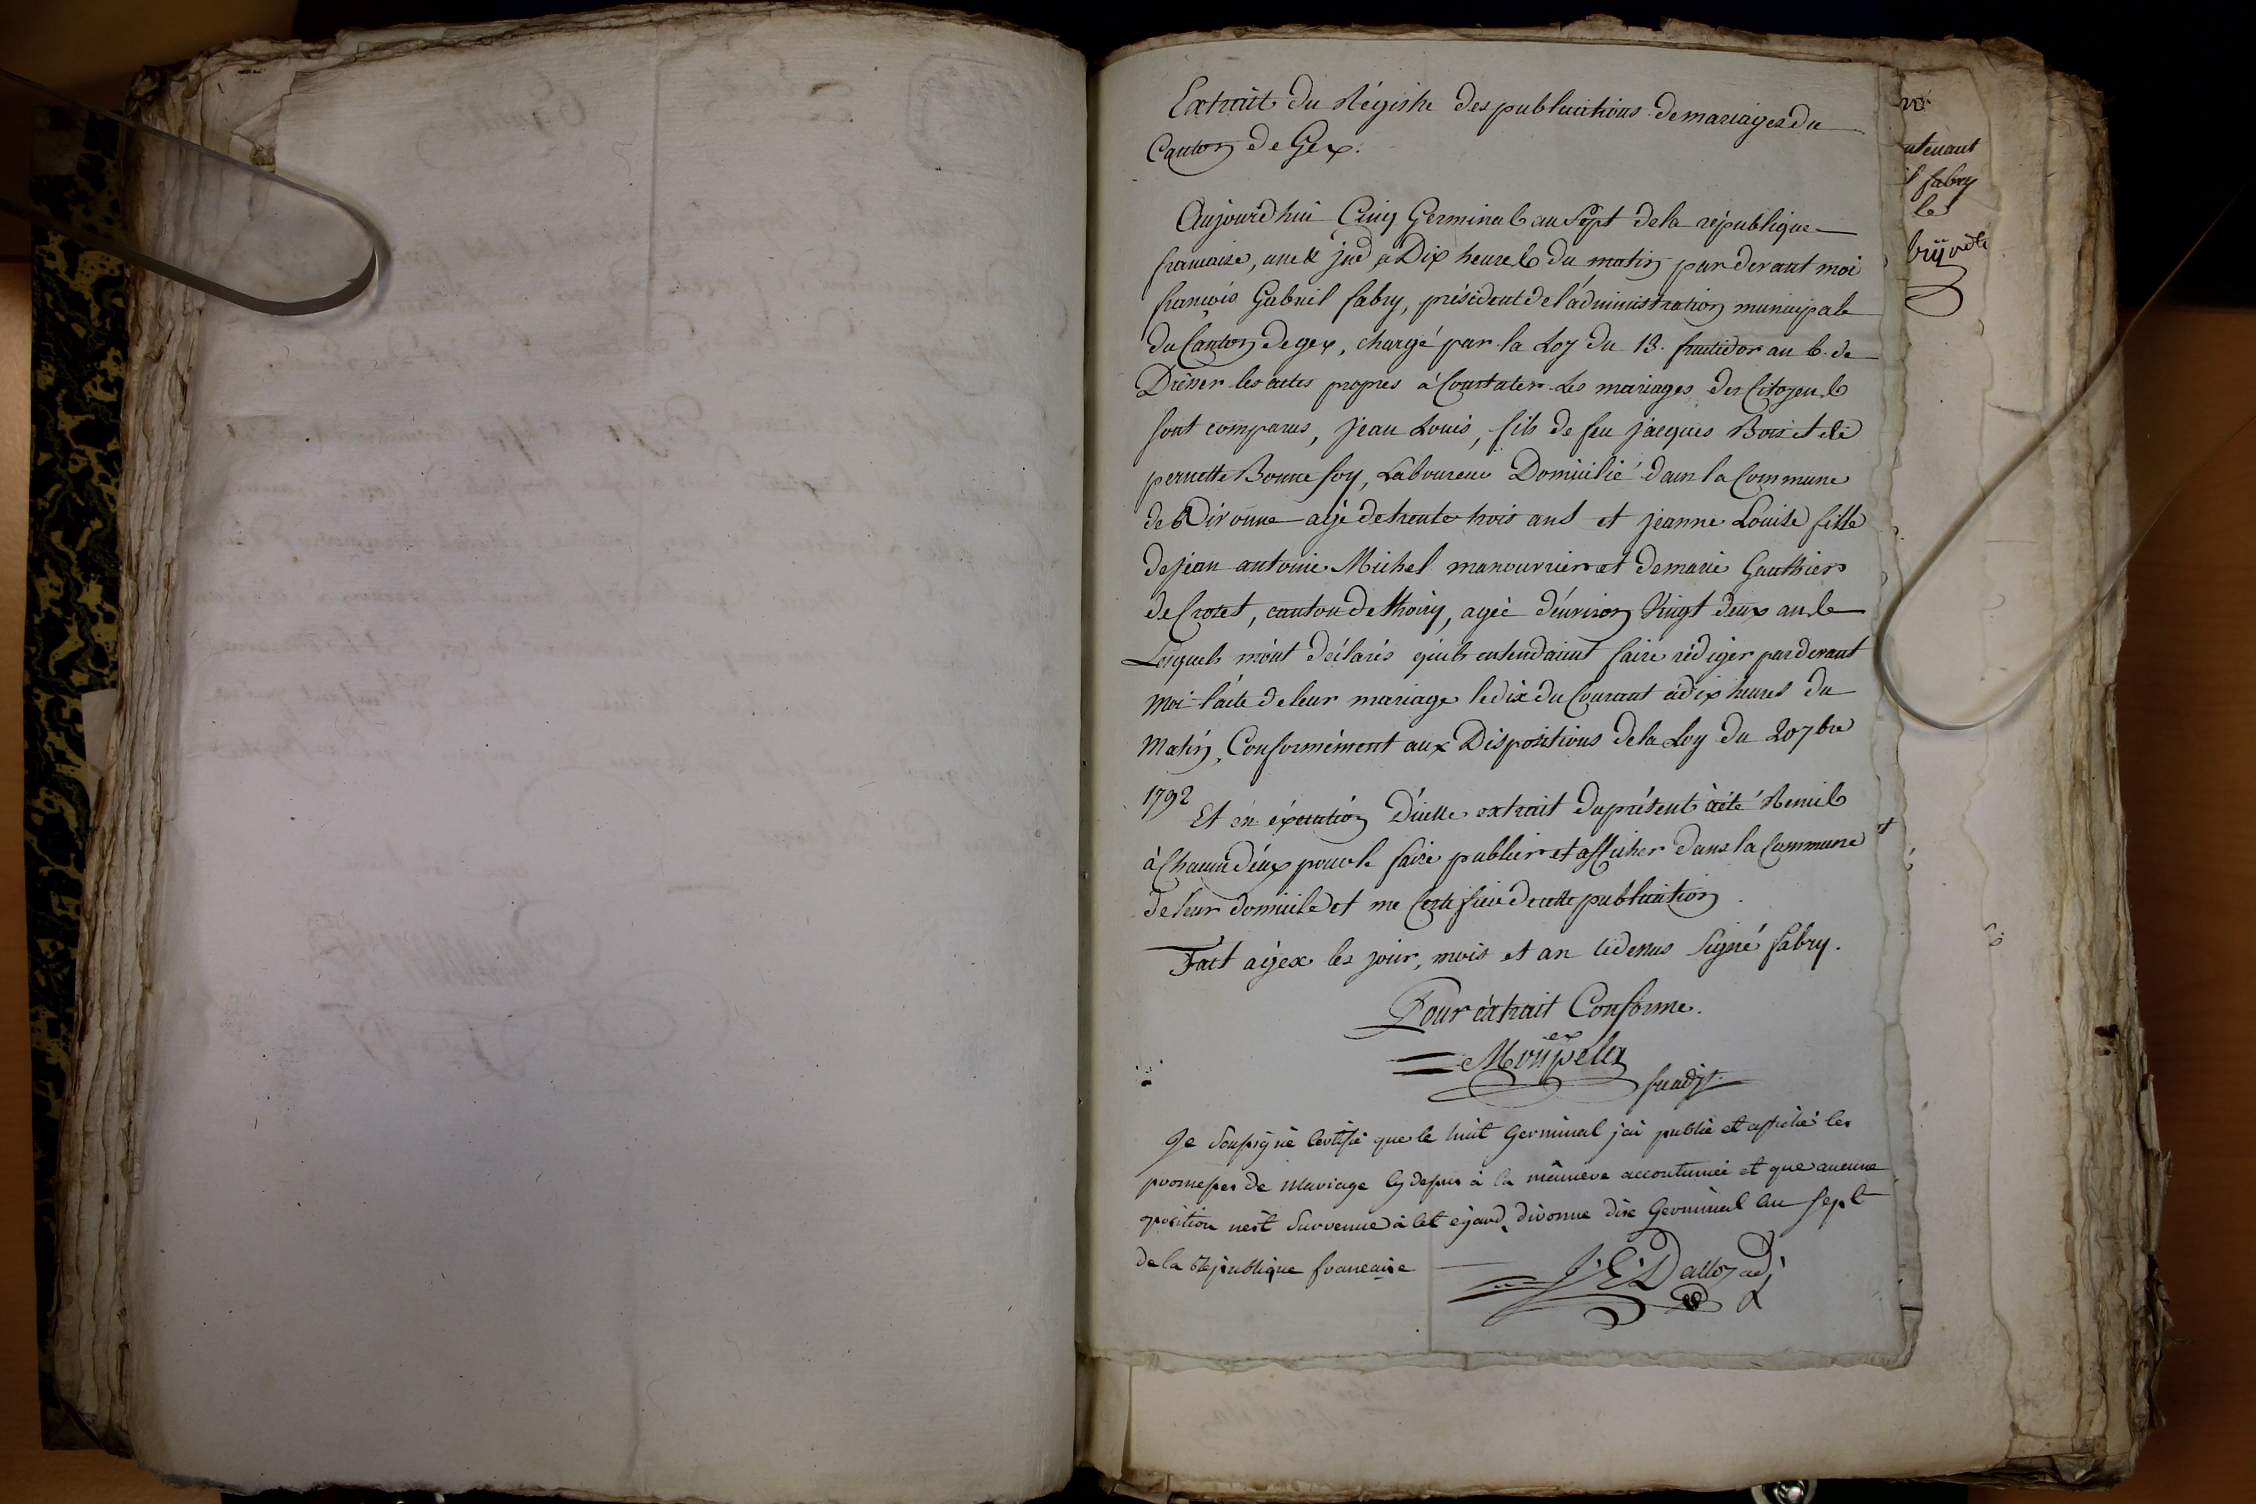 Extrait du Régistre des publications de mariages du
Canton de Gex.
Aujourd'hui Cinq Germinal an Sept de la république
francaise, à Dix heures du matin par devant moi
francois Gabriel fabry, président de l'administration municipale
du Canton de gex, chargé par la Loy du 13. fructidor an 6. de
Drésser les actes propres à Constater Les mariages des Citoyens
sont comparus, jean Louis, fils de feu jacques Bois et de
pernette Bonnefoy, Laboureur Domicilié dans la Commune
de Divonne agé de trente trois ans et jeanne Louise fille
de jean antoine Michel manouvrier et de marie Gauthier
de Crozet, canton de thoiry, agée d'environ Vingt deux ans
Lesquels m'ont déclarés qu'ils entendaient faire rédiger pardevant
moi l'acte de leur mariage le dix du Courant à dix heures du
matin, Conformément aux Dispositions de la Loy du 20 7bre
1792
Et en éxécution D'icelle extrait du présent à été Remis
à Chacun d'eux pour le faire publier et afficher dans la Commune
de leur domicile et me Certifier de cette publication.
Fait à gex les jour, mois et an cidessus Signé fabry.
Pour extrait Conforme.
Je Soussigné Certifie que le huit Germinal j'ai publié et affiché les
promesses de Mariage cy dessus à la manière accoutumée et que aucune
oposition n'est Survenue à cet egard, divonne dix Germinal an Sept
de la République francaise
J. E. Dalloz
utenant
fabry
le